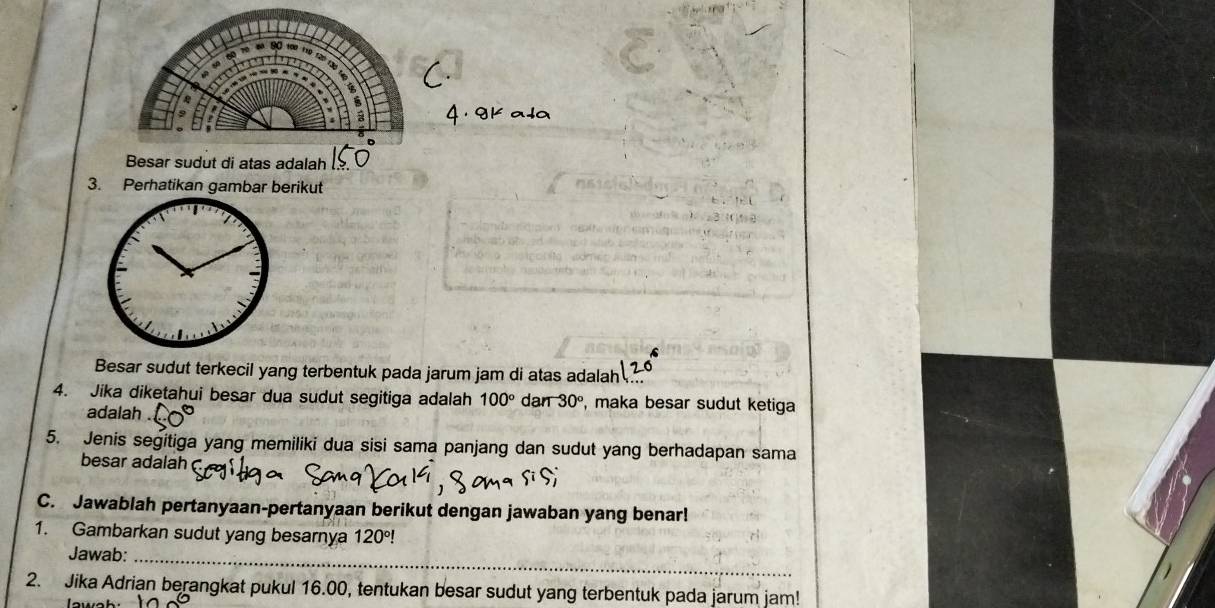 C.
4. gk ada
Besar sudut di atas adalah 150°
3. Perhatikan gambar berikut
Besar sudut terkecil yang terbentuk pada jarum jam di atas adalah 120°
4. Jika diketahui besar dua sudut segitiga adalah 100° dan 30°, maka besar sudut ketiga
adalah 50°
5. Jenis segitiga yang memiliki dua sisi sama panjang dan sudut yang berhadapan sama
besar adalah segitiga sama kaki, sama sisi
C. Jawablah pertanyaan-pertanyaan berikut dengan jawaban yang benar!
1. Gambarkan sudut yang besarnya 120°!
Jawab:
2. Jika Adrian berangkat pukul 16.00, tentukan besar sudut yang terbentuk pada jarum jam!
Jawab: